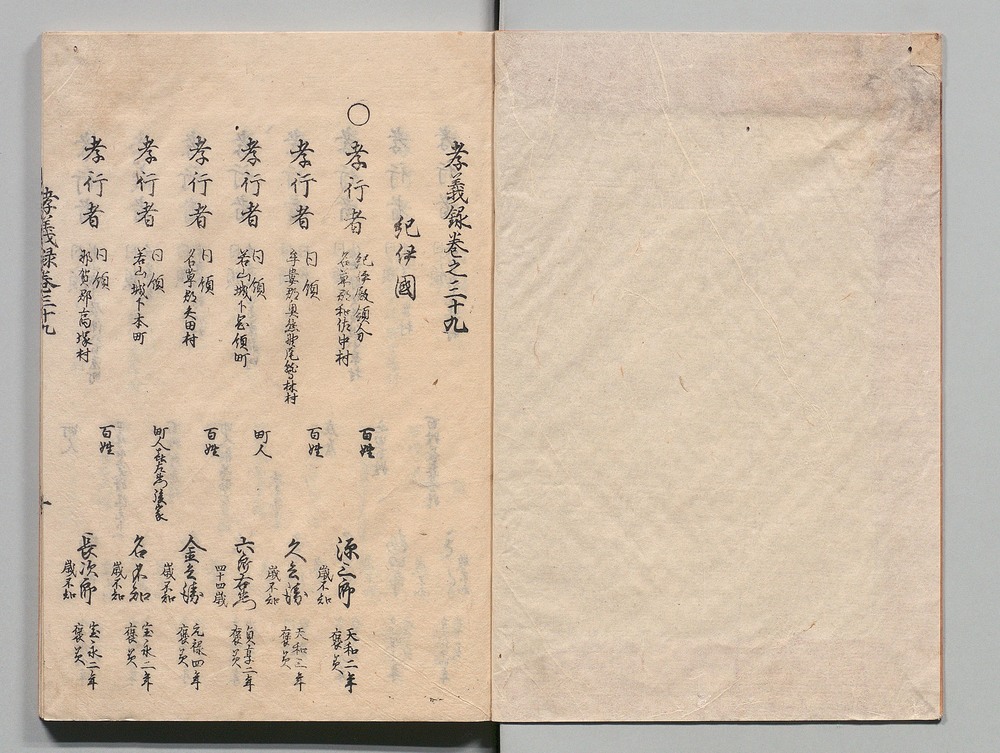 孝義録巻之三十九
紀伊國
○孝行者 紀伊殿領分 名草郡和佐中村 百姓 源三郎 歳不知 天和二年 褒美
孝行者 同領 牟婁郡奥熊野尾鷲林村 百姓 久之湯 歳不知 天和三年 褒美
孝行者 同領 若山城下 町 町人 六郎右衛門 四十四歳 貞享二年 褒美
孝行者 同領 名草郡矢田村 百姓 金之 歳不知 元禄四年 褒美
孝行者 同領 若山城下本町 町人 後家 名不知 歳不知 宝永二年 褒美
孝行者 同領 那賀郡高塚村 百姓 長次郎 歳不知 宝永二年 褒美
孝義録巻三十九